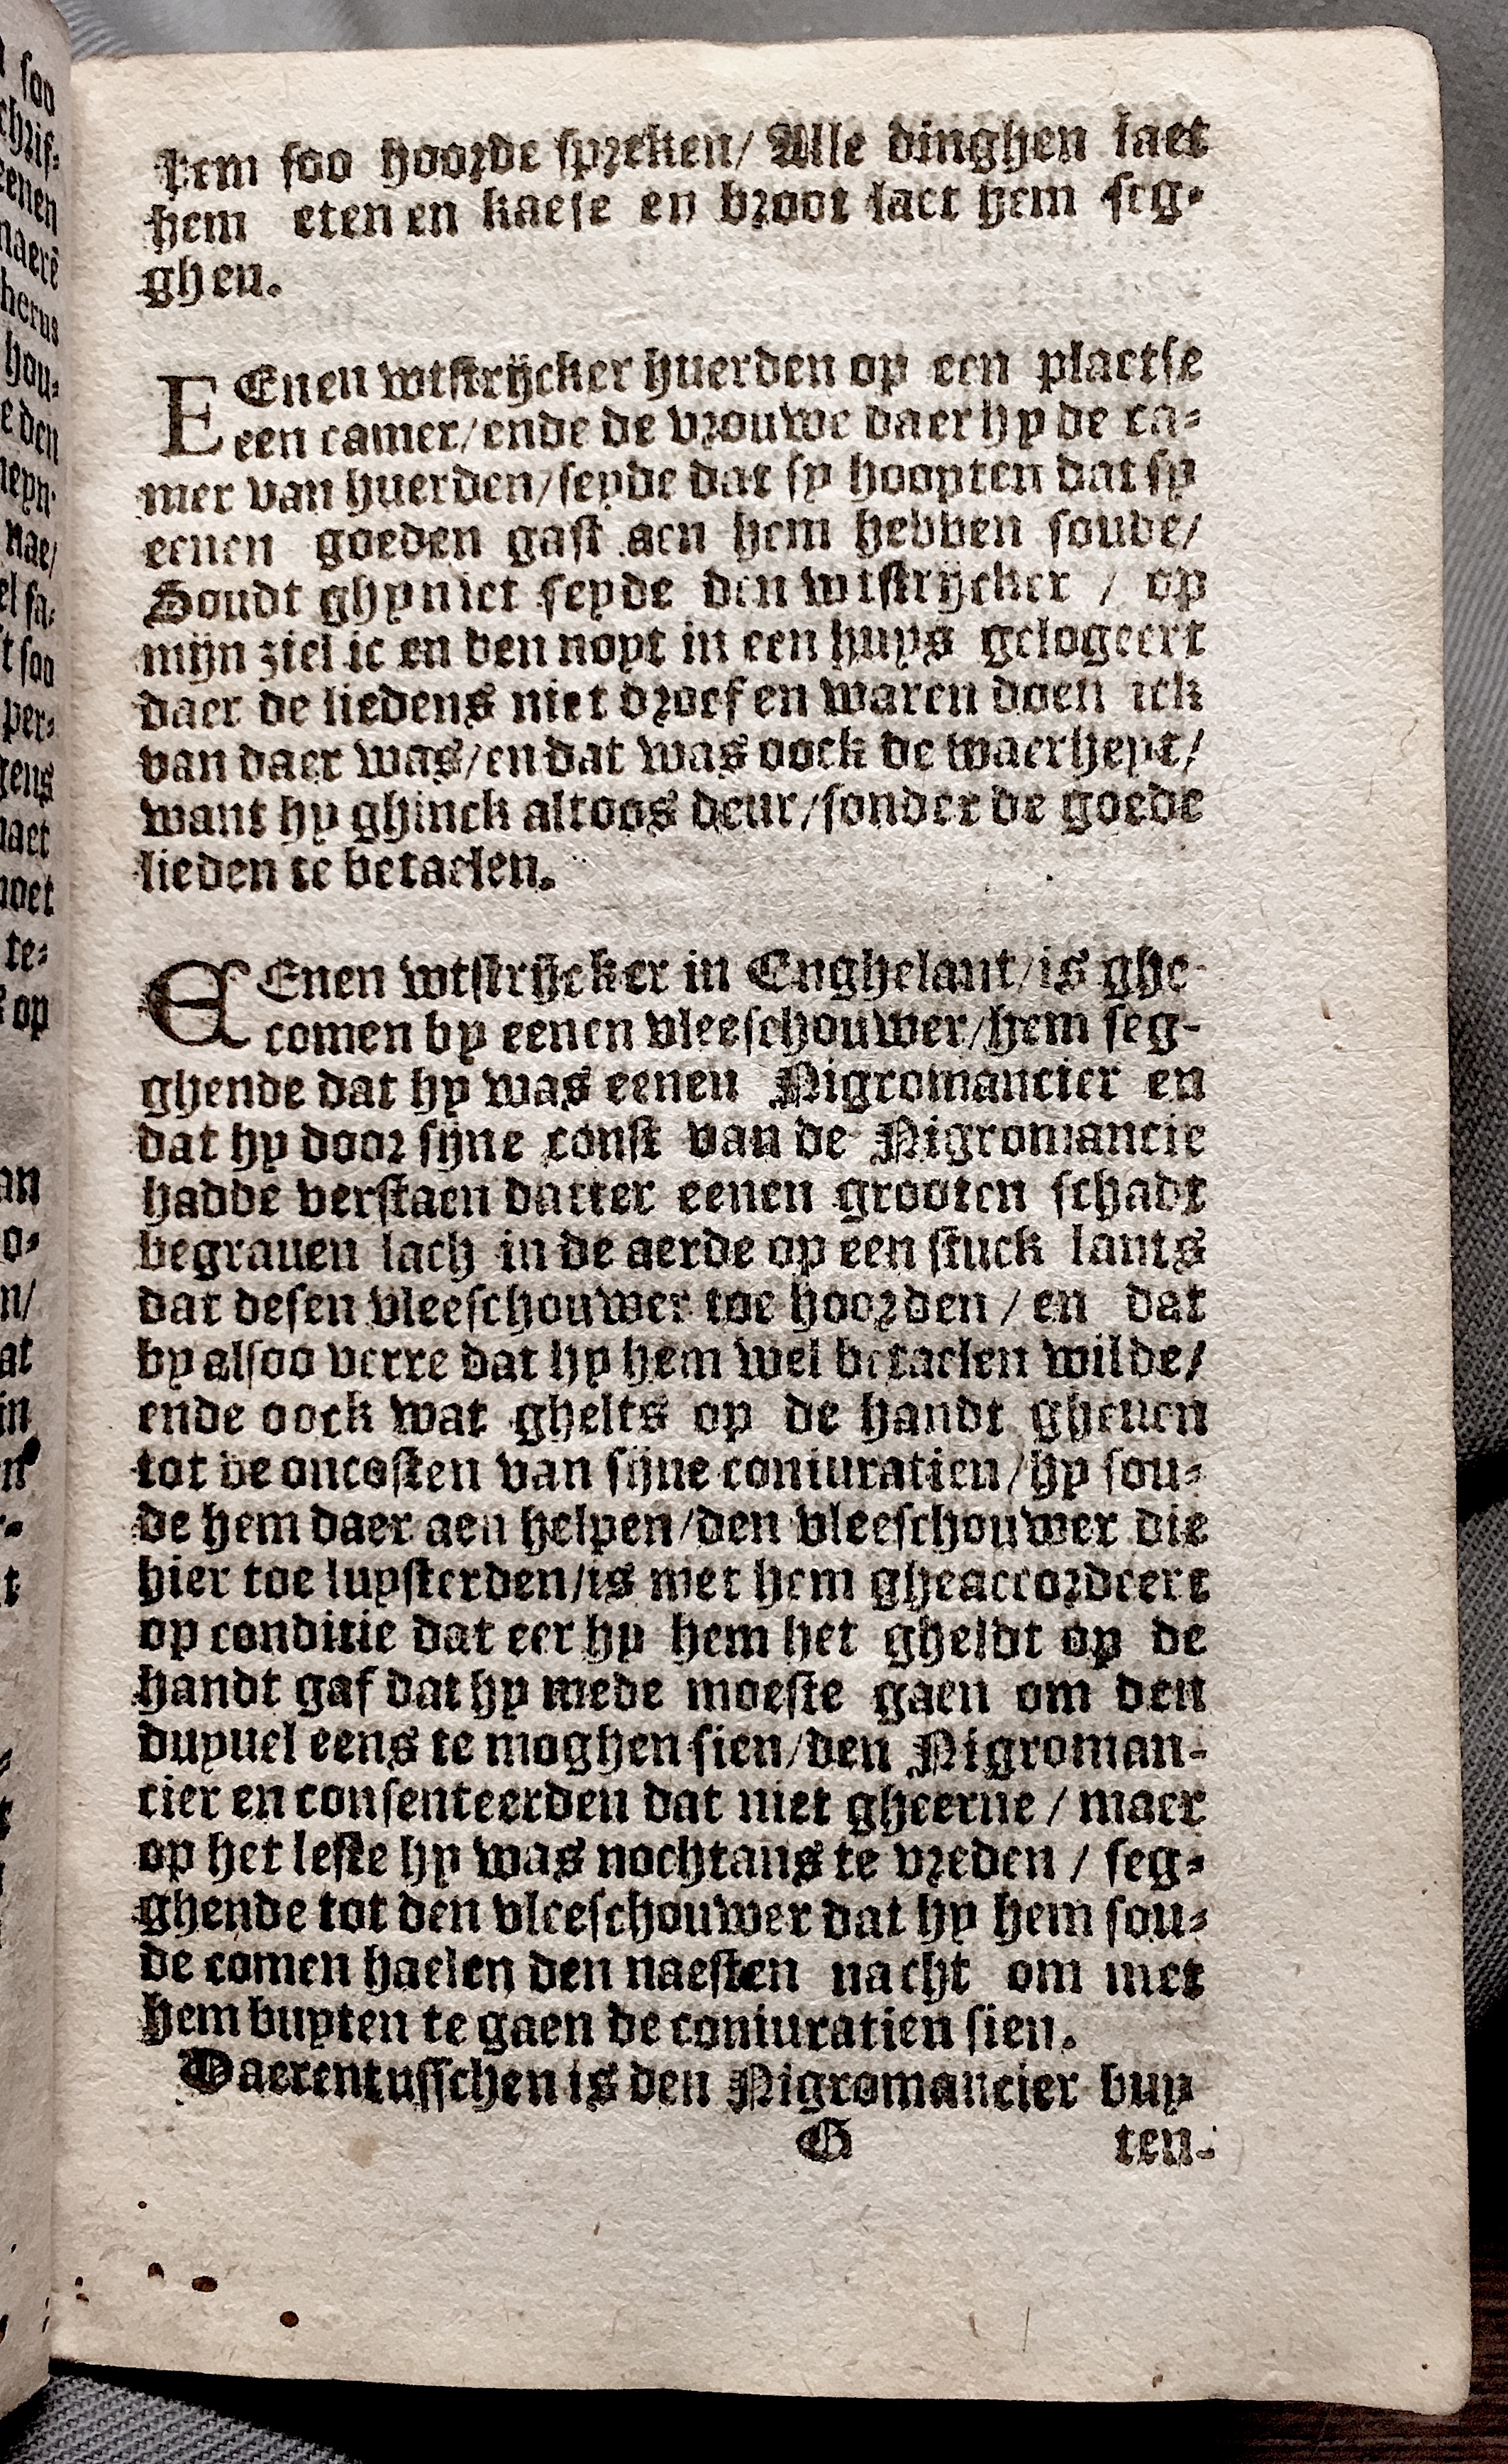 hem soo hoorde spreken/ Alle dinghen laet
hem eten en kaese en broot laet hem seg-
ghen.
EEnen wtstrijcker huerden op een plaetse
een camer/ende de vrouwe daer hy de ca-
mer van huerden/seyde dat sy hoopten dat sy
eenen goeden gast aen hem hebben soude/
Soudt ghy niet seyde den wtstrijcker / op
mijn ziel ic en ben noyt in een huys gelogeert
daer de liedens niet droef en waren doen ick
van daer was/en dat was oock de waerheyt/
want hy ghinck altoos deur/sonder de goede
lieden te betaelen.
EEnen wtstrijcker in Enghelant/is ghe-
comen by eenen vleeschouwer/hem seg-
ghende dat hy was eenen Nigromancier en
dat hy door sijne const van de Nigromancie
hadde verstaen datter eenen grooten schadt
begrauen lach in de aerde op een stuck lants
dat desen vleeschouwer toe hoorden / en dat
by alsoo verre dat hy hem wel betaelen wilde/
ende oock wat ghelts op de handt gheuen
tot de oncosten van sijne coniuratien/hy sou-
de hem daer aen helpen/den vleeschouwer die
hier toe luysterden/is met hem gheaccordeert
op conditie dat eer hy hem het gheldt op de
handt gaf dat hy mede moeste gaen om den
duyuel eens te moghen sien/den Nigroman-
cier en consenteerden dat niet gheerne / maer
op het leste hy was nochtans te vreden / seg-
ghende tot den vleeschouwer dat hy hem sou-
de comen haelen den naesten nacht om met
hem buyten te gaen de coniuratien sien.
Daerentusschen is den Nigromancier buy
G ten-